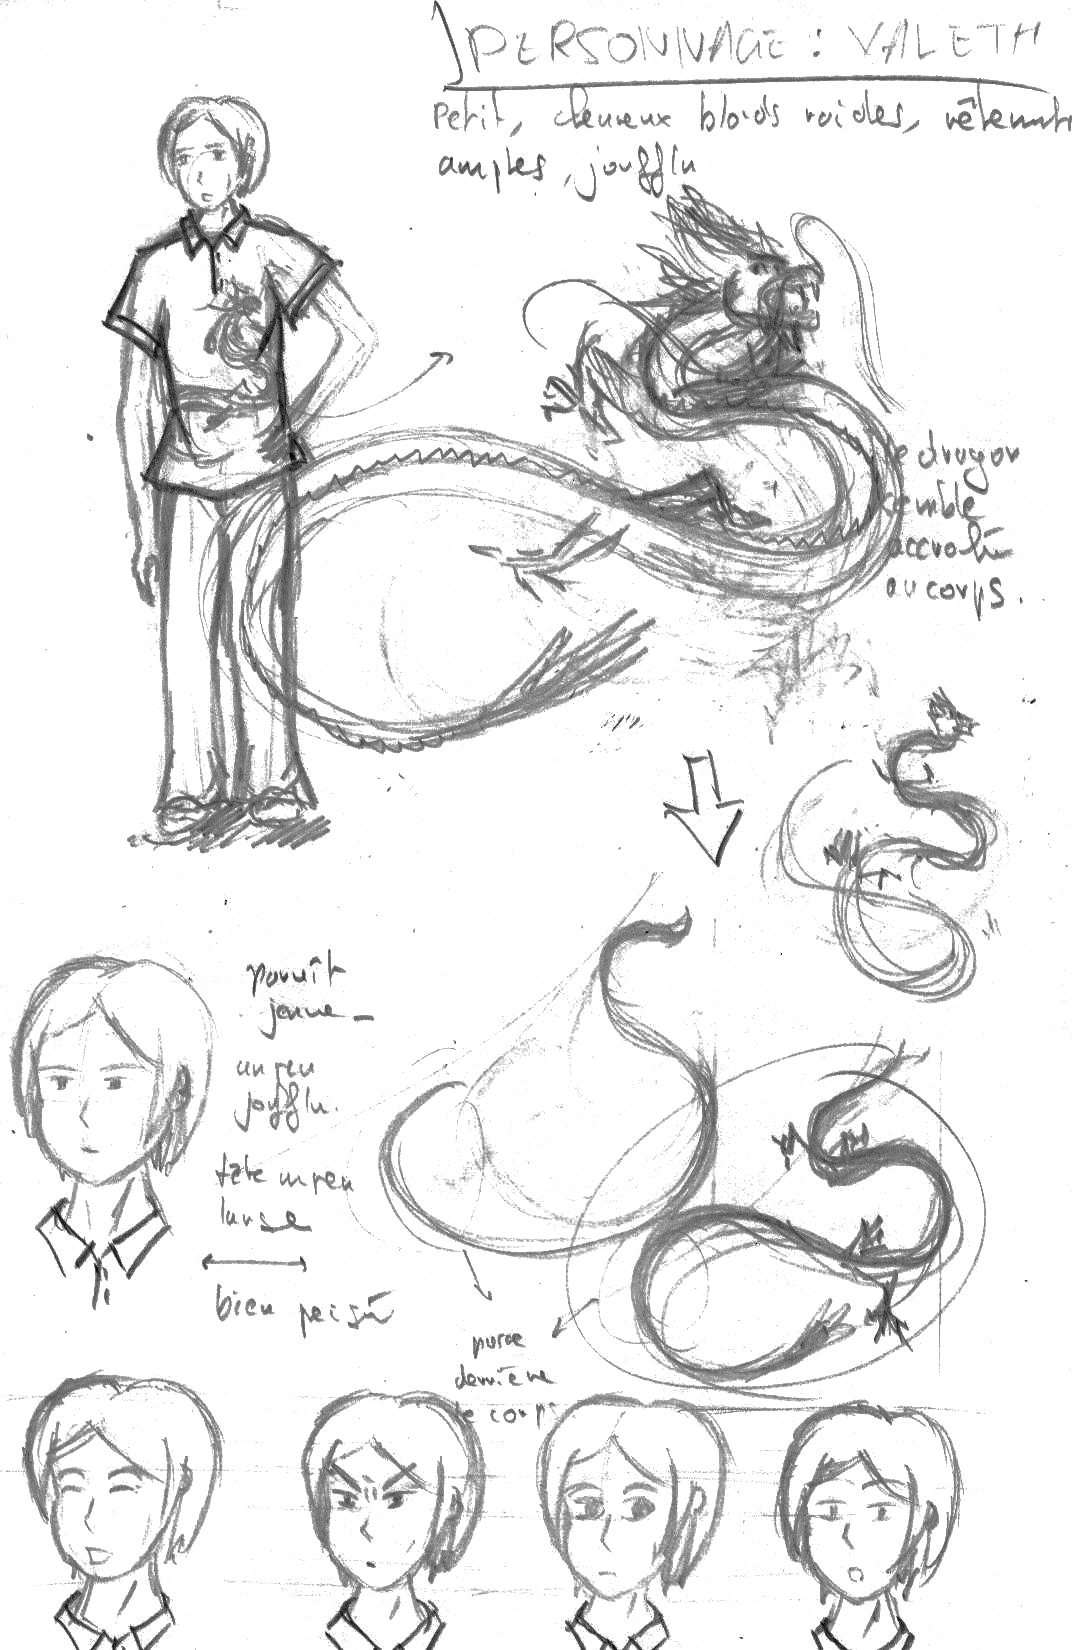 PERSONNAGE : VALETH
Petit, cheveux blonds roides, vêtements
amples, joufflu
le dragon
semble
accroché
au corps.
paraît
jeune
un peu
joufflu.
tête un peu
large
bien
passe
derrière
le corps